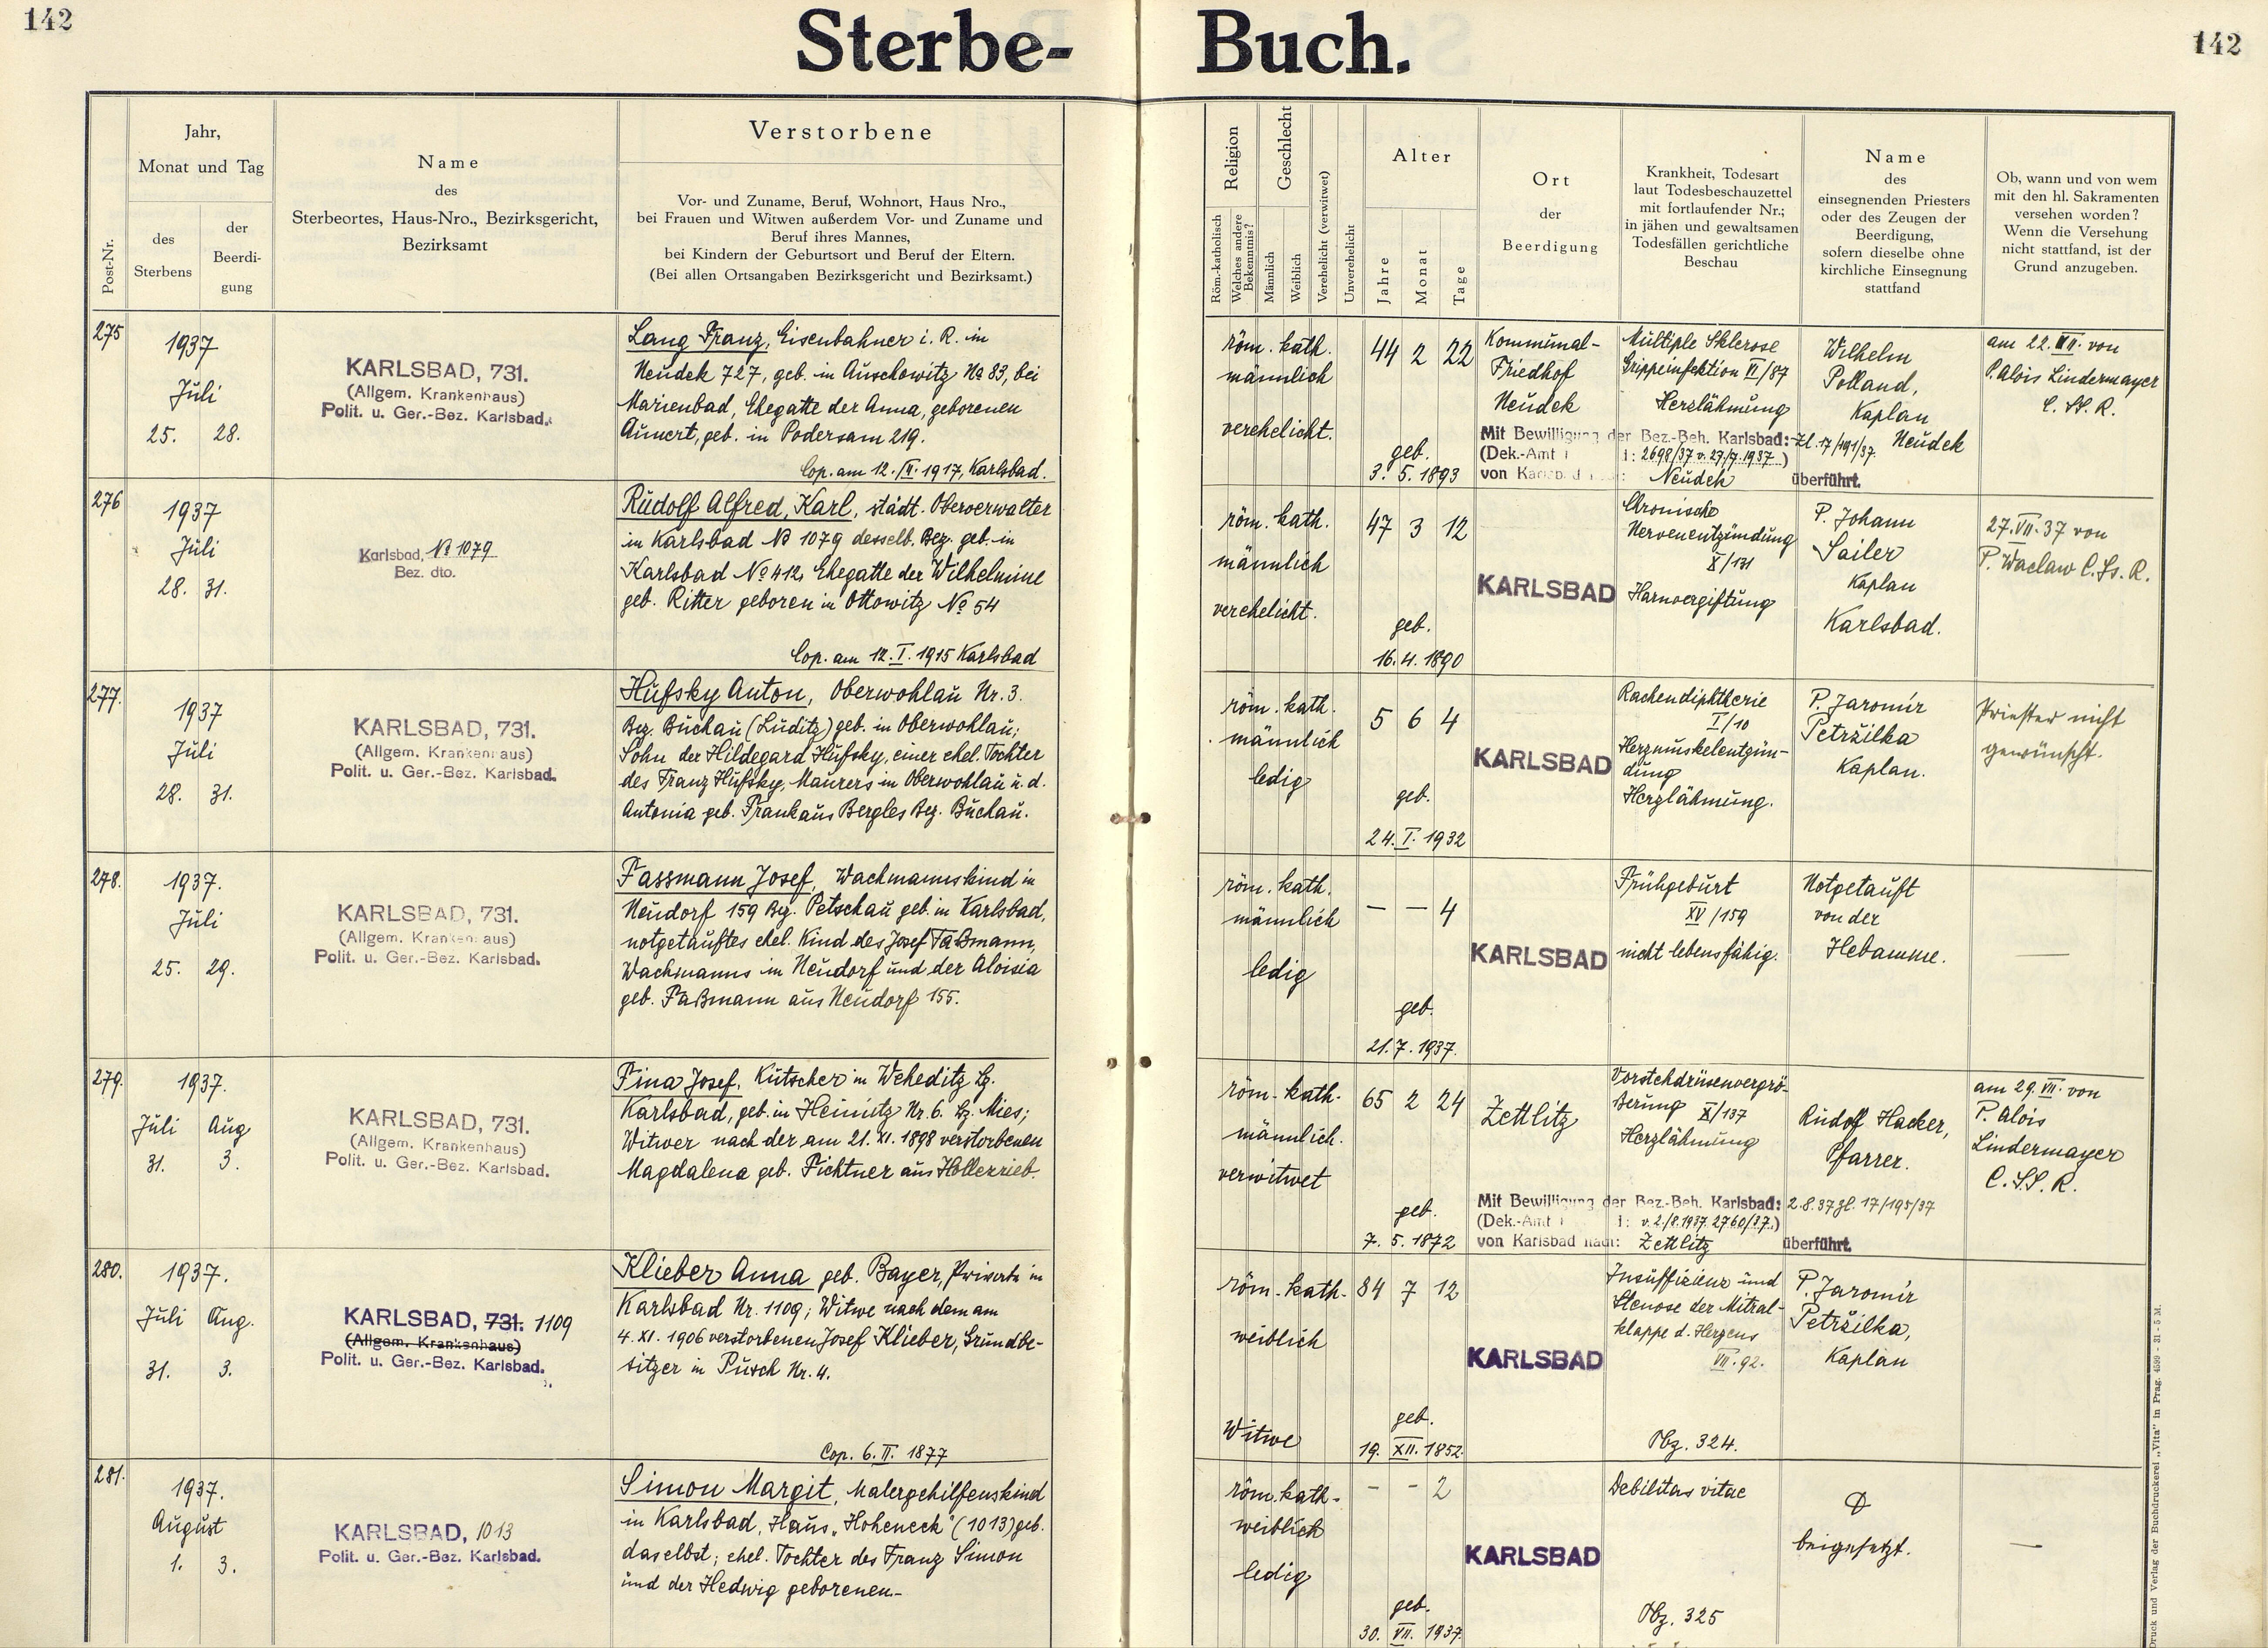 142
Sterbe-Buch.
142
Post-Nr.
Jahr,
Monat und Tag
des
Sterbens
der
Beerdi-
gung
Name
des
Sterbeortes, Haus-Nro., Bezirksgericht,
Bezirksamt
Verstorbene
Vor- und Zuname, Beruf, Wohnort, Haus Nro.,
bei Frauen und Witwen außerdem Vor- und Zuname und
Beruf ihres Mannes,
bei Kindern der Geburtsort und Beruf der Eltern.
(Bei allen Ortsangaben Bezirksgericht und Bezirksamt.)
Religion
Röm.-katholisch
Welches andere
Bekenntnis?
Geschlecht
Männlich
Weiblich
Verehelicht (verwitwet)
Unverehelicht
Alter
Jahre
Monat
Tage
Ort
der
Beerdigung
Krankheit, Todesart
laut Todesbeschauzettel
mit fortlaufender Nr.;
in jähen und gewaltsamen
Todesfällen gerichtliche
Beschau
Name
des
einsegnenden Priesters
oder des Zeugen der
Beerdigung,
sofern dieselbe ohne
kirchliche Einsegnung
stattfand
Ob, wann und von wem
mit den hl. Sakramenten
versehen worden?
Wenn die Versehung
nicht stattfand, ist der
Grund anzugeben.
275
1937
Juli
25. 28.
KARLSBAD, 731.
(Allgem. Krankenhaus)
Polit. u. Ger.-Bez. Karlsbad.
Lang Franz, Eisenbahner i. R. in
Neudek 727, geb. in Auschowitz No 83, bei
Marienbad, Ehegatte der Anna, geborenen
geb. in Podersam 219.
Cop. am 12./II. 1917, Karlsbad.
röm. kath.
männlich
verehelicht.
44 2 22
geb.
3. 5. 1893
Kommunal-
Friedhof
Neudek
Multiple Sklerose
Grippeinfektion VI/87
Herzlähmung
Mit Bewilligung der Bez.-Beh. Karlsbad: Zl. 17/191/37.
(Dek.-Amt : 2698/37 v. 27/7. 1937.)
von Karlsbad nach: Neudek überführt.
Wilhelm
Polland,
Kaplan
Neudek
am 22. VII. von
P. Alois Lindermayer
C. SS. R.
276
1937
Juli
28. 31.
Karlsbad, No 1079
Bez. dto.
Rudolf Alfred, Karl, städt. Oberverwalter
in Karlsbad No 1079 desselb. Bez. geb. in
Karlsbad No 412, Ehegatte der Wilhelmine
geb. Ritter geboren in Ottowitz No 54
Cop. am 12. I. 1915 Karlsbad
röm. kath.
männlich
verehelicht.
47 3 12
geb.
16. 4. 1890
KARLSBAD
Chronische
Nervenentzündung
X/131
Harnvergiftung
P. Johann
Sailer
Kaplan
Karlsbad.
27. VII. 37 von
P. Waclaw C. Ss. R.
277.
1937
Juli
28. 31.
KARLSBAD, 731.
(Allgem. Krankenhaus)
Polit. u. Ger.-Bez. Karlsbad.
Hufsky Anton, Oberwohlau Nr. 3.
Bez. Buchau (Luditz) geb. in Oberwohlau;
Sohn der Hildegard Hufsky, einer ehel. Tochter
des Franz Hufsky, Maurers in Oberwohlau u. d.
Antonia geb. Frank aus Bergles Bez. Buchau.
röm. kath.
männlich
ledig
5 6 4
geb.
24. I. 1932
KARLSBAD
Rachendiphtherie
I/10
Herzmuskelentzün-
dung
Herzlähmung.
P. Jaromír
Petržilka
Kaplan.
Priester nicht
gewünscht.
278.
1937.
Juli
25. 29.
KARLSBAD, 731.
(Allgem. Krankenhaus)
Polit. u. Ger.-Bez. Karlsbad.
Fassmann Josef, Wachmannskind in
Neudorf 159 Bez. Petschau geb. in Karlsbad,
notgetauftes ehel. Kind des Josef Faßmann,
Wachmanns in Neudorf und der Aloisia
geb. Faßmann aus Neudorf 155.
röm. kath.
männlich
ledig
— — 4
geb.
21. 7. 1937.
KARLSBAD
Frühgeburt
XV/159
nicht lebensfähig.
Notgetauft
von der
Hebamme.
—
279.
1937.
Juli Aug
31. 3.
KARLSBAD, 731.
(Allgem. Krankenhaus)
Polit. u. Ger.-Bez. Karlsbad.
Fina Josef, Kutscher in Weheditz Bz.
Karlsbad, geb. in Heinitz Nr. 6. Bz. Mies;
Witwer nach der am 21. XI. 1898 verstorbenen
Magdalena geb. Fichtner aus Hollezrieb.
röm. kath.
männlich.
verwitwet
65 2 24
geb.
7. 5. 1872
Zettlitz
Vorstehdrüsenvergrö-
ßerung X/137
Herzlähmung
Mit Bewilligung der Bez.-Beh. Karlsbad: 2.8.37 Zl. 17/195/37
(Dek.-Amt : v. 2./8. 1937. 2760/37.)
von Karlsbad nach: Zettlitz überführt.
Rudolf Hacker,
Pfarrer.
am 29. VII. von
P. Alois
Lindermayer
C. SS. R.
280.
1937.
Juli Aug.
31. 3.
KARLSBAD, 731. 1109
(Allgem. Krankenhaus)
Polit. u. Ger.-Bez. Karlsbad.
Klieber Anna geb. Bayer, Private in
Karlsbad Nr. 1109; Witwe nach dem am
4. XI. 1906 verstorbenen Josef Klieber, Grundbe-
sitzer in Pusch Nr. 4.
Cop. 6. II. 1877
röm. kath.
weiblich
Witwe
84 7 12
geb.
19. XII. 1852
KARLSBAD
Insuffizienz und
Stenose der Mitral-
klappe d. Herzens
VII. 92.
Obz. 324.
P. Jaromír
Petržilka,
Kaplan
281.
1937.
August
1. 3.
KARLSBAD, 1013
Polit. u. Ger.-Bez. Karlsbad.
Simon Margit, Malergehilfenskind
in Karlsbad, Haus „Hoheneck" (1013) geb.
daselbst; ehel. Tochter des Franz Simon
und der Hedwig geborenen-
röm. kath.
weiblich
ledig
- - 2
geb.
30. VII. 1937.
KARLSBAD
Debilitas vitae
Obz. 325
beigesetzt.
—
Druck und Verlag der Buchdruckerei „Vita" in Prag. 4599 - 31 - 5 M.